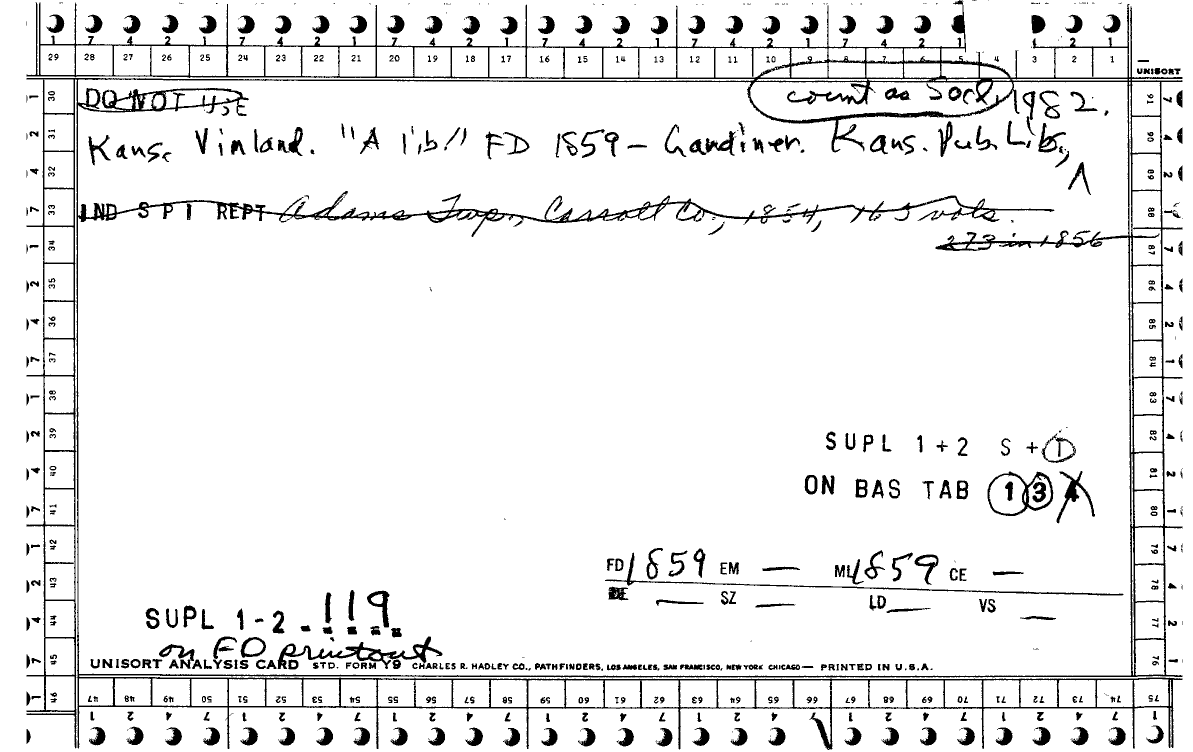 1 7 4 2 1 7 4 2 1 7 4 2 1 7 4 2 1 7 4 2 1 7 4 2 1 1 2 1
29 28 27 26 25 24 23 22 21 20 19 18 17 16 15 14 13 12 11 10 9 8 7 6 5 4 3 2 1
UNISORT
DO NOT USE
count as Socl, 1982.
Kans. Vinland. "A lib" FD 1859 - Gardiner. Kans. Pub. Libs,
IND S P I REPT Adams Twp., Carroll Co., 1854, 165 vols.
273 in 1856
SUPL 1+2 S + D
ON BAS TAB 1 3 4
FD 1859 EM — ML 1859 CE —
SZ — LD — VS —
SUPL 1-2 119
on FD printout
UNISORT ANALYSIS CARD STD. FORM Y9 CHARLES R. HADLEY CO., PATHFINDERS, LOS ANGELES, SAN FRANCISCO, NEW YORK CHICAGO — PRINTED IN U.S.A.
47 48 49 50 51 52 53 54 55 56 57 58 59 60 61 62 63 64 65 66 67 68 69 70 71 72 73 74 75